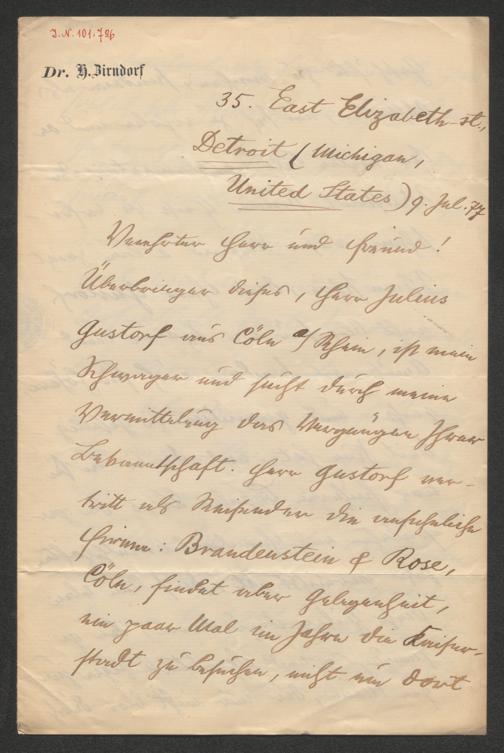 J.N. 101.786
Dr. H. Zirndorf
35. East Elizabeth-st.,
Detroit (Michigan,
United States) 9. Jul. 77
Verehrter Herr und Freund!
Überbringer dieses, Herr Julius
Gustorf aus Cöln a/Rhein, ist mein
Schwager und sucht durch meine
Vermittelung das Vergnügen Ihrer
Bekanntschaft. Herr Gustorf ver-
tritt als Reisender die ansehnliche
Firma: Brandenstein & Rose,
Cöln, findet aber Gelegenheit,
ein paar Mal im Jahre die Kaiser-
stadt zu besuchen, nicht um dort